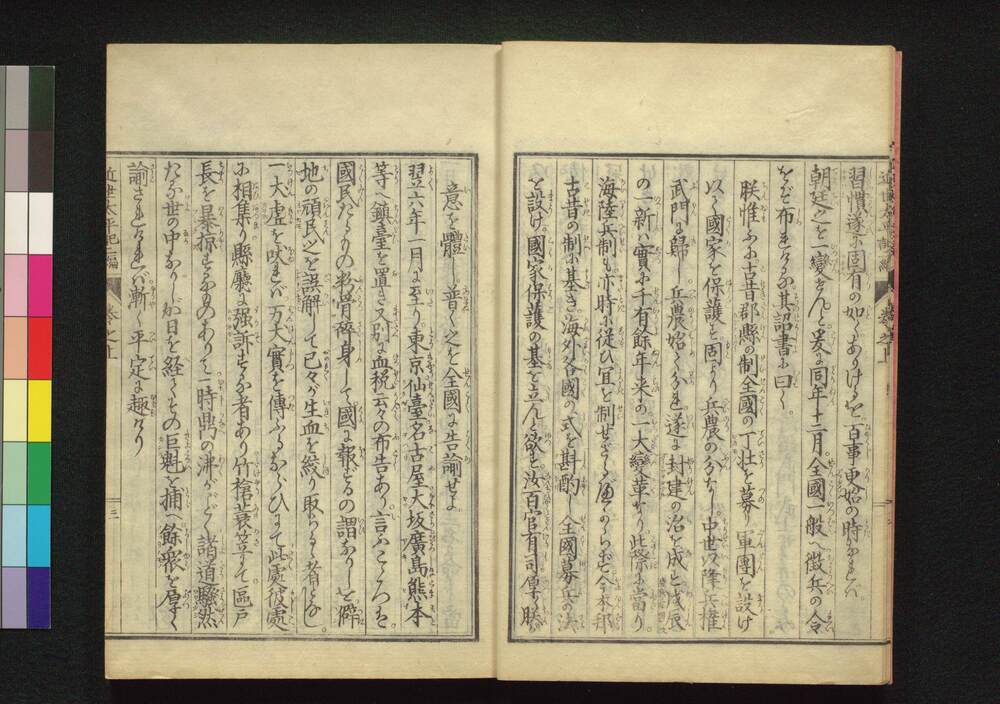 習慣遂に固有の如くありけるを百事更始の時なれバ
朝廷之を一變せんと爰に同年十二月全國一般へ徴兵の令
をぞ布れける其詔書に曰く
朕惟ふに古昔郡縣の制全國の丁壮を募り軍團を設け
以て國家を保護す固より兵農の分なし中世以降兵權
武門に歸し兵農始て分れ遂に封建の治を成す戊辰
の一新ハ實に千有餘年来の一大變革なり此際に當り
海陸兵制も亦時に從ひ宜を制せざるべからず今本邦
古昔の制に基き海外各國の式を斟酌し全國募兵の法
を設け國家保護の基を立んと欲す汝百官有司厚く朕が
意を體し普く之を全國に告諭せよ
翌六年一月に至り東京仙臺名古屋大坂廣島熊本
等へ鎮臺を置き又別に血税云々の布告あり言ふこゝろハ
國民たるもの粉骨碎身して國に報ずるの謂なりしを僻
地の頑民之を誤解して已々が生血を絞り取らるゝ者とし
一犬虚を吠れバ万犬實を傳ふるならひにて此處彼處
に相集り縣廳に强訴する者あり竹槍蓑笠にて區戸
長を暴掠するものありて一時鼎の沸がごとく諸道騒然
たる世の中なりしが日を経てその巨魁を捕へ餘衆を厚く
諭されけれバ漸く平定に趣けり
近世太平記二編
巻之上
三